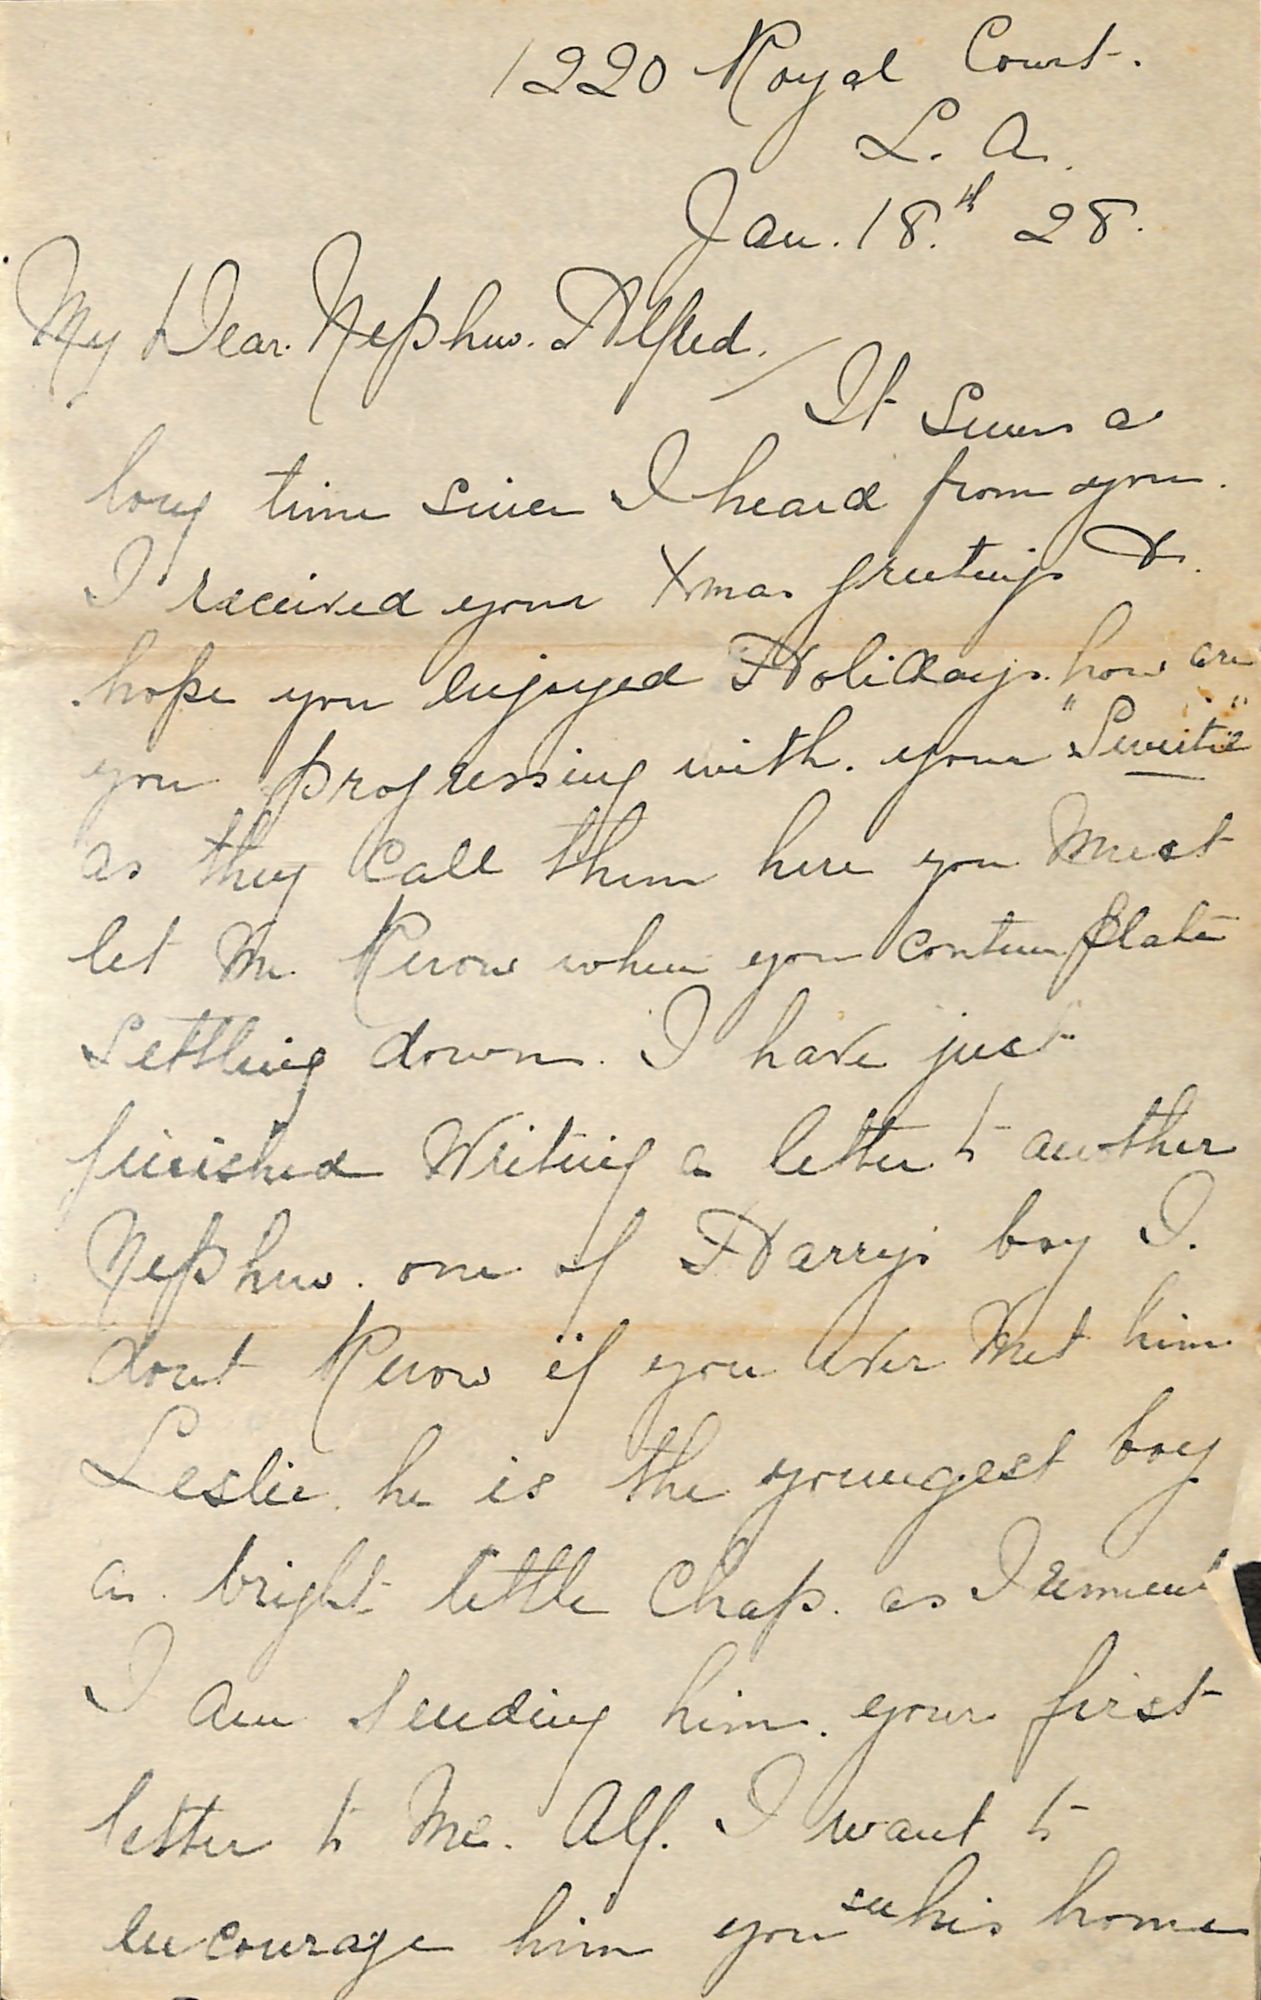 1220 Royal Court.
L. A.
Jan. 18.th 28.
My Dear. Nephew. Alfred.
It seems a
long time since I heard from you.
I received your Xmas greetings &.
hope you enjoyed Holidays. how are
you progressing with. your "Sweetie"
as they call them here you Must
let Me Know when you contemplate
settling down. I have just
finished Writing a letter to another
Nephew. one of Harry's boy I.
dont Know if you ever Met him
Leslie. he is the youngest boy
a. bright little Chap. as I
I am sending him. your first
letter to Me. Alf. I want to
encourage him you see his home